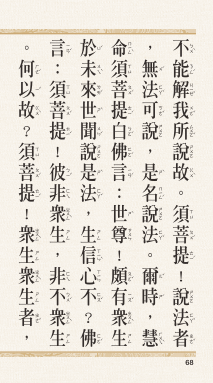 不能解我所說故。須菩提！說法者
，無法可說，是名說法。爾時，慧
命須菩提白佛言：世尊！頗有眾生
於未來世聞說是法，生信心不？佛
言：須菩提！彼非眾生，非不眾生
。何以故？須菩提！眾生眾生者，
68